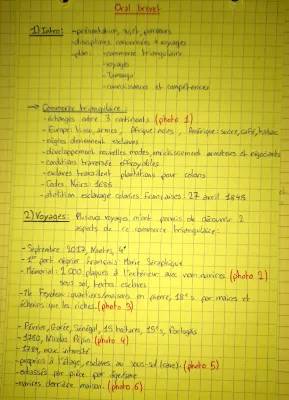 Oral brevet
1) Intro: - présentation, sujet, parcours
- disciplines concernées + voyages
- plan: - commerce triangulaire
- voyages
- Tamango
- connaissances et compétences
→ Commerce triangulaire:
- échanges entre 3 continents (photo 1)
- Europe: tissu, armes, Afrique: noirs, Amérique: sucre, café, tabac
- nègres deviennent esclaves
- développement nouvelles modes, enrichissement armateurs et négociants
- conditions traversée effroyables
- esclaves travaillent plantations pour colons
- Codes Noirs: 1685
- abolition esclavage colonies françaises: 27 avril 1848
2) Voyages: Plusieurs voyages m'ont permis de découvrir 2
aspects de ce commerce triangulaire:
- Septembre 2017, Nantes, 4°
- 1er port négrier français Marie Séraphique
- Mémorial: 2 000 plaques à l'extérieur avec nom navires (photo 2)
sous sol, textes esclaves
- Ile Feydeau: quartiers/maisons en pierre, 18°s par noirs et
que les riches. (photo 3)
- Février, Gorée, Sénégal, 15 hectares, 15°s, Portugais
- 1780, Nicolas Pépin (photo 4)
- 1784, aux
- proprios à l'étage, esclaves au sous-sol (cave). (photo 5)
- entassés par pièce par
- navires derrière maison. (photo 6)